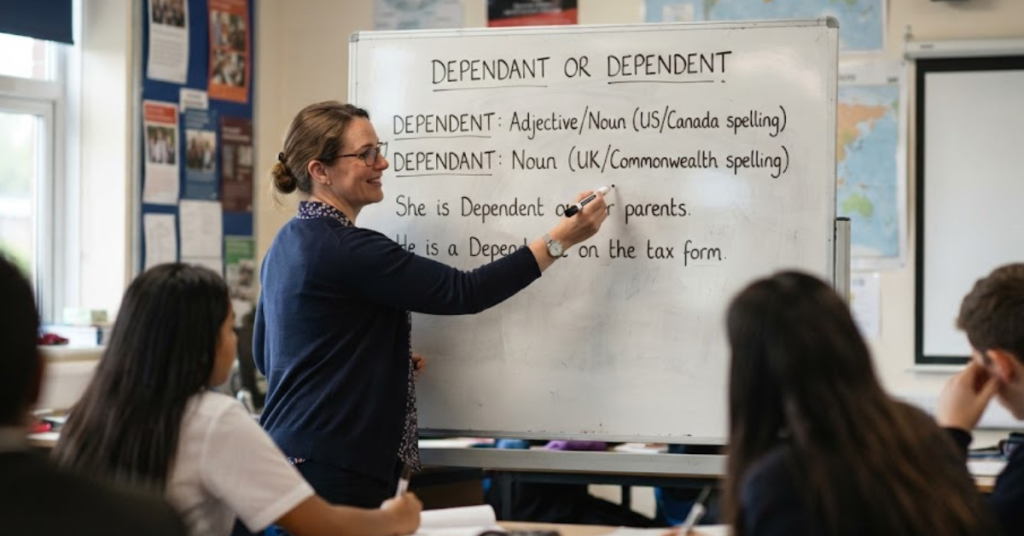 DEPENDANT OR DEPENDENT
DEPENDENT: Adjective/Noun (US/Canada spelling)
DEPENDANT: Noun (UK/Commonwealth spelling)
She is Dependent parents.
He is a on the tax form.